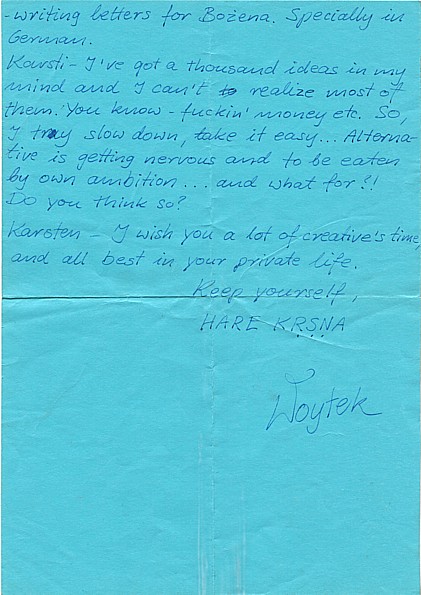 -writing letters for Bożena. Specially in
German.
Karsti - I've got a thousand ideas in my
mind and I can't to realize most of
them. You know - fuckin' money etc. So,
I tray slow down, take it easy... Alterna-
tive is getting nervous and to be eaten
by own ambition... and what for?!
Do you think so?
Karsten - I wish you a lot of creative's time,
and all best in your private life.
Keep yourself,
HARE KṚṢṆA
Woytek